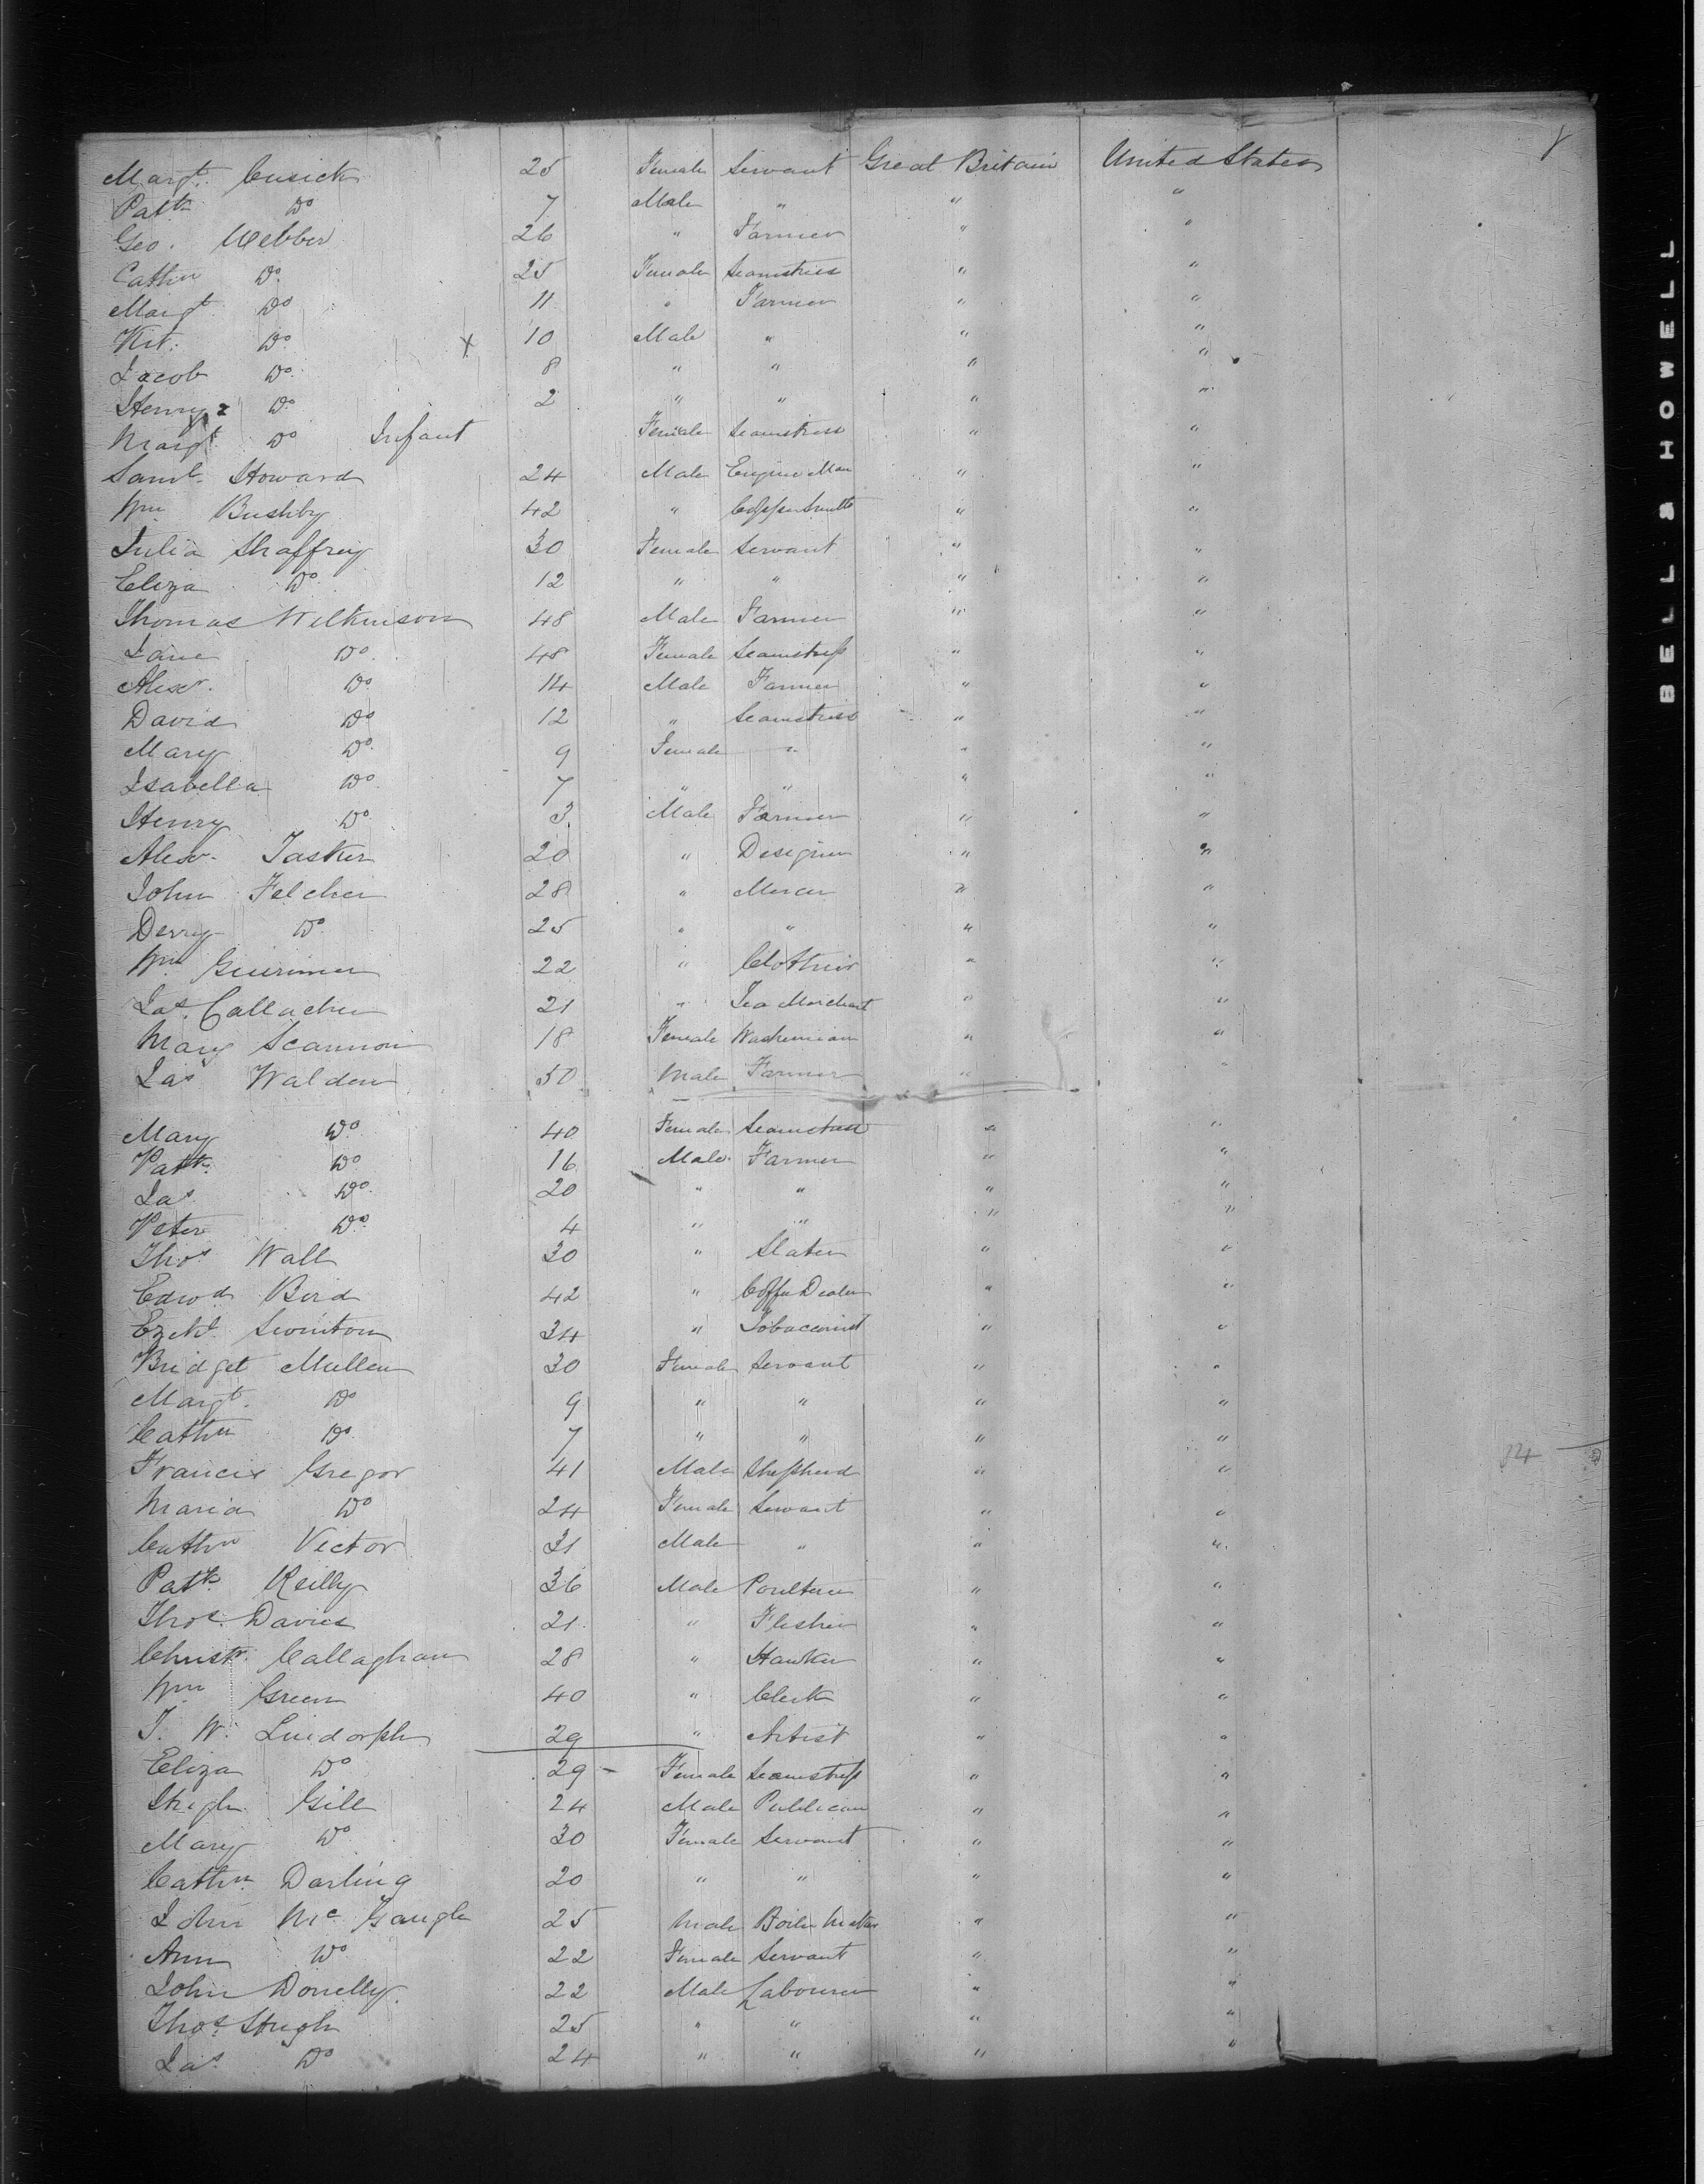 Margt. Cusick 25 Female Servant Great Britain United States
Patk Do 7 Male " " "
Geo. Webber 26 " Farmer " "
Cathn Do 25 Female Seamstress " "
Margt Do 11 " Farmer " "
Kit. Do X 10 Male " " "
Jacob Do 8 " " " "
Henry Do 2 " " " "
Margt Do Infant Female Seamstress " "
Saml. Howard 24 Male Engine Man " "
Wm Bushby 42 " Coppersmith " "
Julia Shaffrey 30 Female Servant " "
Eliza Do 12 " " " "
Thomas Wilkinson 48 Male Farmer " "
Jane Do 48 Female Seamstress " "
Alexr. Do 14 Male Farmer " "
David Do 12 " Seamstress " "
Mary Do 9 Female " " "
Isabella Do 7 " " " "
Henry Do 3 Male Farmer " "
Alexr. Tasker 20 " Designer " "
John Felcher 28 " Mercer " "
Derry Do 25 " " " "
Wm 22 " Clothier " "
Jas. Callacher 21 " Tea Merchant " "
Mary Scannon 18 Female " "
Jas Walden 50 Male Farmer " "
Mary Do 40 Female Seamstress " "
Patk. Do 16 Male Farmer " "
Jas Do 20 " " " "
Peter Do 4 " " " "
Thos Wall 30 " Slater " "
Edwd Bird 42 " Coffee Dealer " "
Ezekl. Swinton 34 " Tobacconist " "
Bridget Mullen 30 Female Servant " "
Margt. Do 9 " " " "
Cathn Do 7 " " " "
Francis Gregor 41 Male Shepherd " " 34
Maria Do 24 Female Servant " "
Cathn Victor 31 Male " " "
Patk Reilly 36 Male Poulterer " "
Thos. Davies 21 " Flesher " "
Christr. Callaghan 28 " Hawker " "
Wm Green 40 " Clerk " "
J. W. Lindorph 29 " Artist " "
Eliza Do 29 Female Seamstress " "
Hugh Gill 24 Male Publican " "
Mary Do 30 Female Servant " "
Cathn. Darling 20 " " " "
John Mc Gaugh 25 Male Boiler Maker " "
Ann Do 22 Female Servant " "
John Donelly 22 Male Labourer " "
Thos. Hugh 25 " " " "
Jas. Do 24 " " " "
BELL & HOWELL